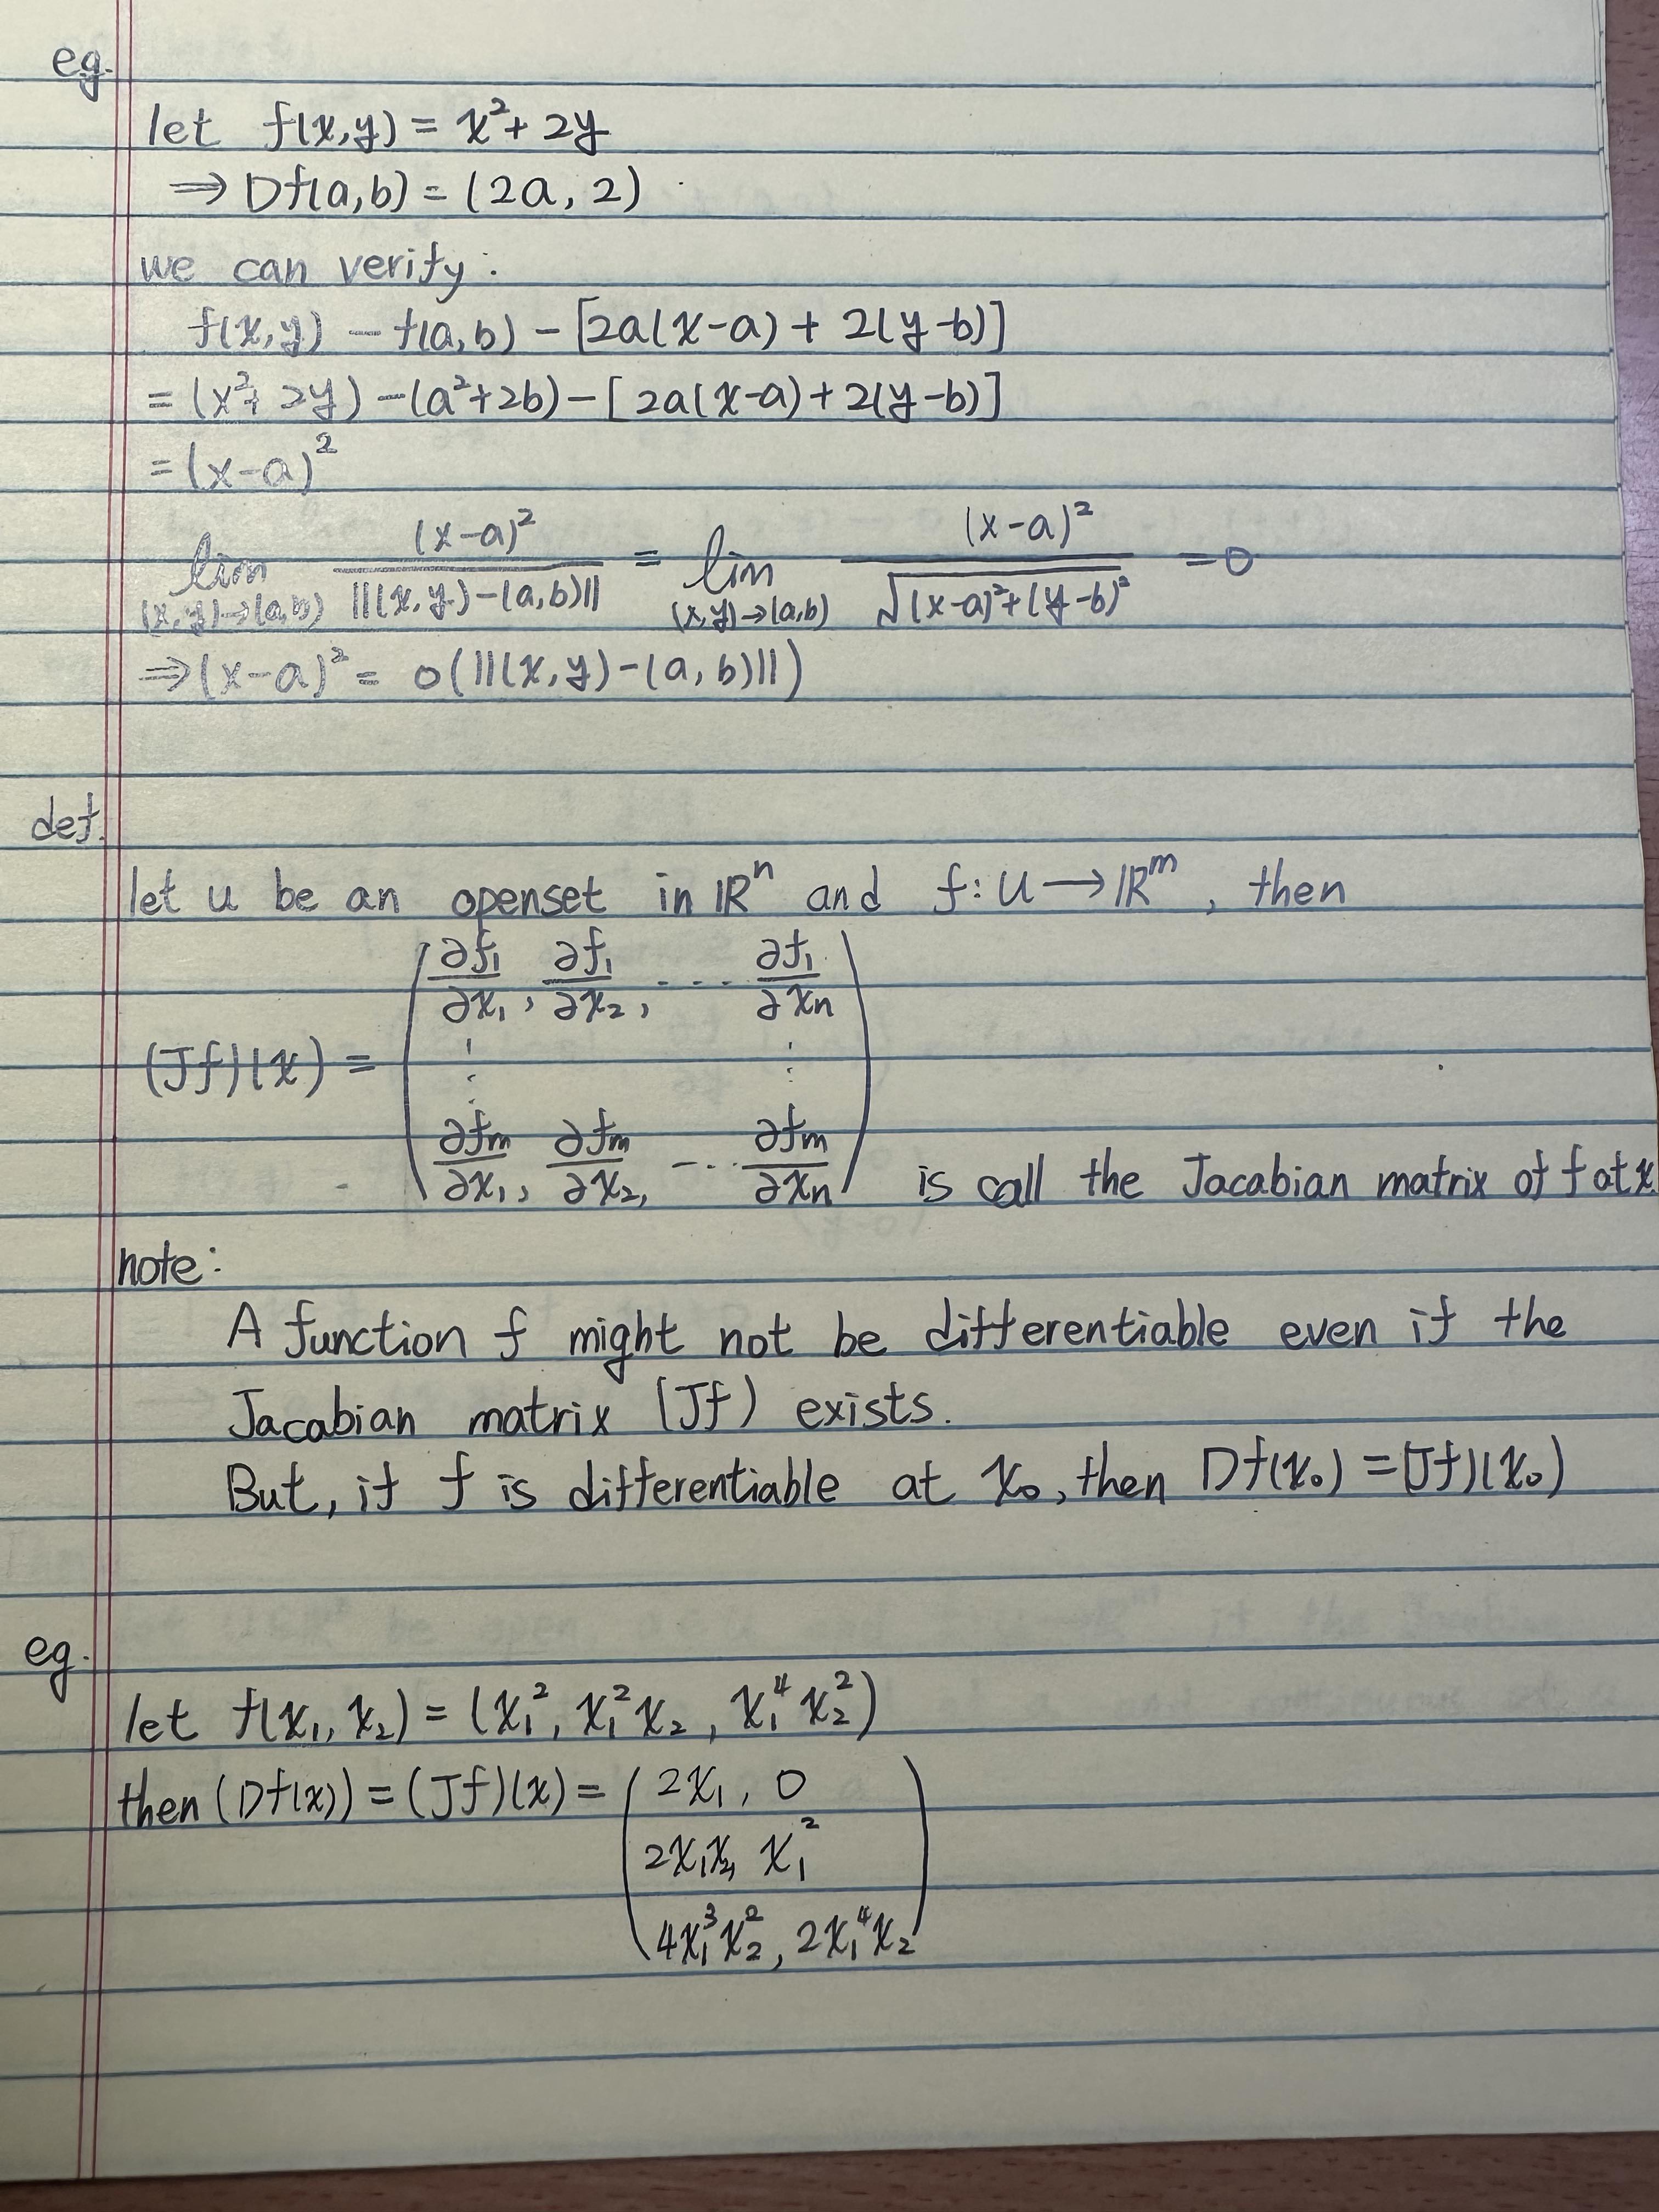 eg.
let f(x,y) = x²+ 2y
⇒ Df(a,b) = (2a, 2)
we can verify:
f(x,y) - f(a,b) - [2a(x-a) + 2(y-b)]
= (x²+ 2y) - (a²+2b) - [2a(x-a) + 2(y-b)]
= (x-a)²
lim_{(x,y)→(a,b)} (x-a)² / ||(x,y)-(a,b)|| = lim_{(x,y)→(a,b)} (x-a)² / √((x-a)²+(y-b)²) = 0
⇒ (x-a)² = o(||(x,y)-(a,b)||)
def.
let u be an openset in ℝⁿ and f: U → ℝᵐ, then
(Jf)(x) = ( ∂f₁/∂x₁, ∂f₁/∂x₂, ... ∂f₁/∂xₙ
⋮ ⋮
∂fₘ/∂x₁, ∂fₘ/∂x₂, ... ∂fₘ/∂xₙ ) is call the Jacabian matrix of f at x
note:
A function f might not be differentiable even if the
Jacabian matrix (Jf) exists.
But, if f is differentiable at x₀, then Df(x₀) = (Jf)(x₀)
eg.
let f(x₁, x₂) = (x₁², x₁²x₂, x₁⁴x₂²)
then (Df(x)) = (Jf)(x) = ( 2x₁, 0
2x₁x₂, x₁²
4x₁³x₂², 2x₁⁴x₂ )